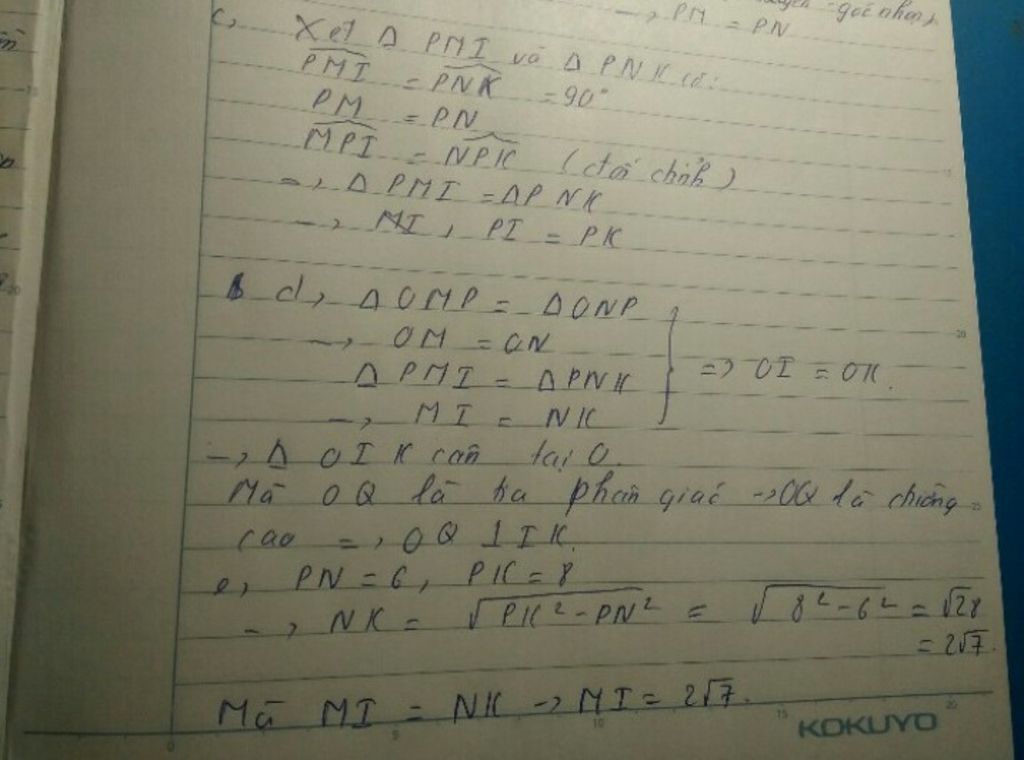 góc nhọn)
→ PM = PN
c, Xét Δ PMI và Δ PNK có:
PMI = PNK = 90°
PM = PN
MPI = NPK (đối đỉnh)
=> Δ PMI = Δ PNK
→ MI, PI = PK
d, Δ OMP = Δ ONP
→ OM = ON
Δ PMI = Δ PNK => OI = OK.
→ MI = NK
→ Δ OIK cân tại O.
Mà OQ là tia phân giác → OQ là
cao => OQ ⊥ IK.
e, PN = 6, PK = 8
→ NK = √PK² - PN² = √8² - 6² = √28
= 2√7.
Mà MI = NK → MI = 2√7.
KOKUYO